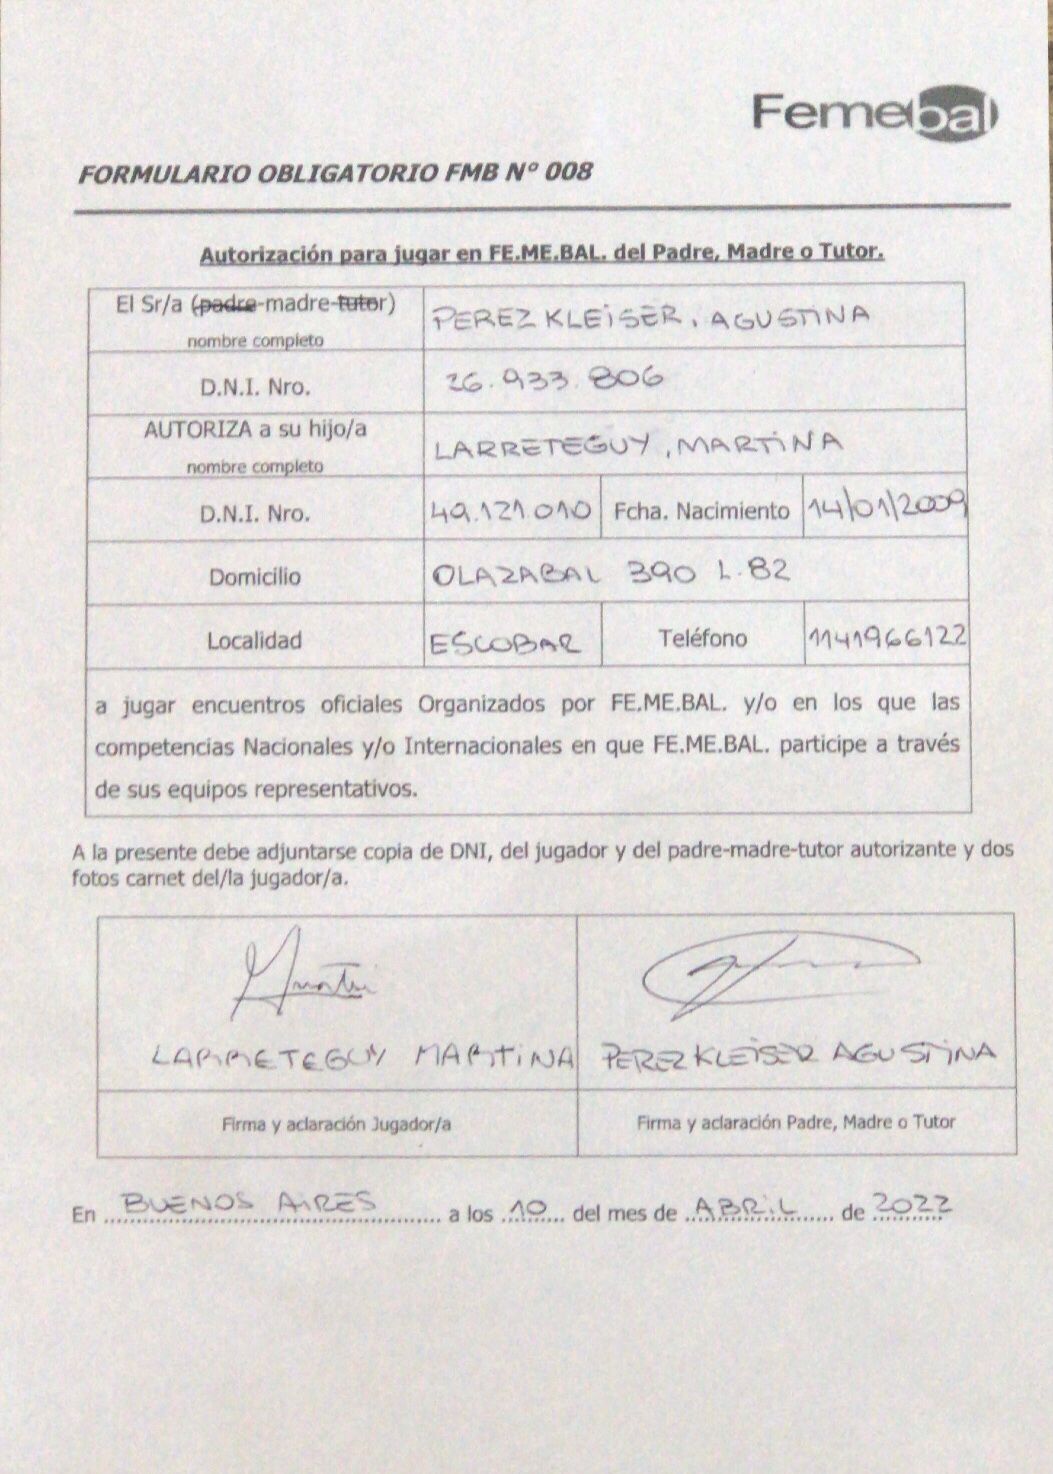 Femebal
FORMULARIO OBLIGATORIO FMB N° 008
Autorización para jugar en FE.ME.BAL. del Padre, Madre o Tutor.
El Sr/a (padre-madre-tutor) PEREZ KLEISER, AGUSTINA
nombre completo
D.N.I. Nro. 26.933.806
AUTORIZA a su hijo/a LARRETEGUY, MARTINA
nombre completo
D.N.I. Nro. 49.121.010 Fcha. Nacimiento 14/01/2009
Domicilio OLAZABAL 390 L.82
Localidad ESCOBAR Teléfono 1141966122
a jugar encuentros oficiales Organizados por FE.ME.BAL. y/o en los que las
competencias Nacionales y/o Internacionales en que FE.ME.BAL. participe a través
de sus equipos representativos.
A la presente debe adjuntarse copia de DNI, del jugador y del padre-madre-tutor autorizante y dos
fotos carnet del/la jugador/a.
LARRETEGUY MARTINA PEREZ KLEISER AGUSTINA
Firma y aclaración Jugador/a Firma y aclaración Padre, Madre o Tutor
En BUENOS AIRES a los 10 del mes de ABRIL de 2022